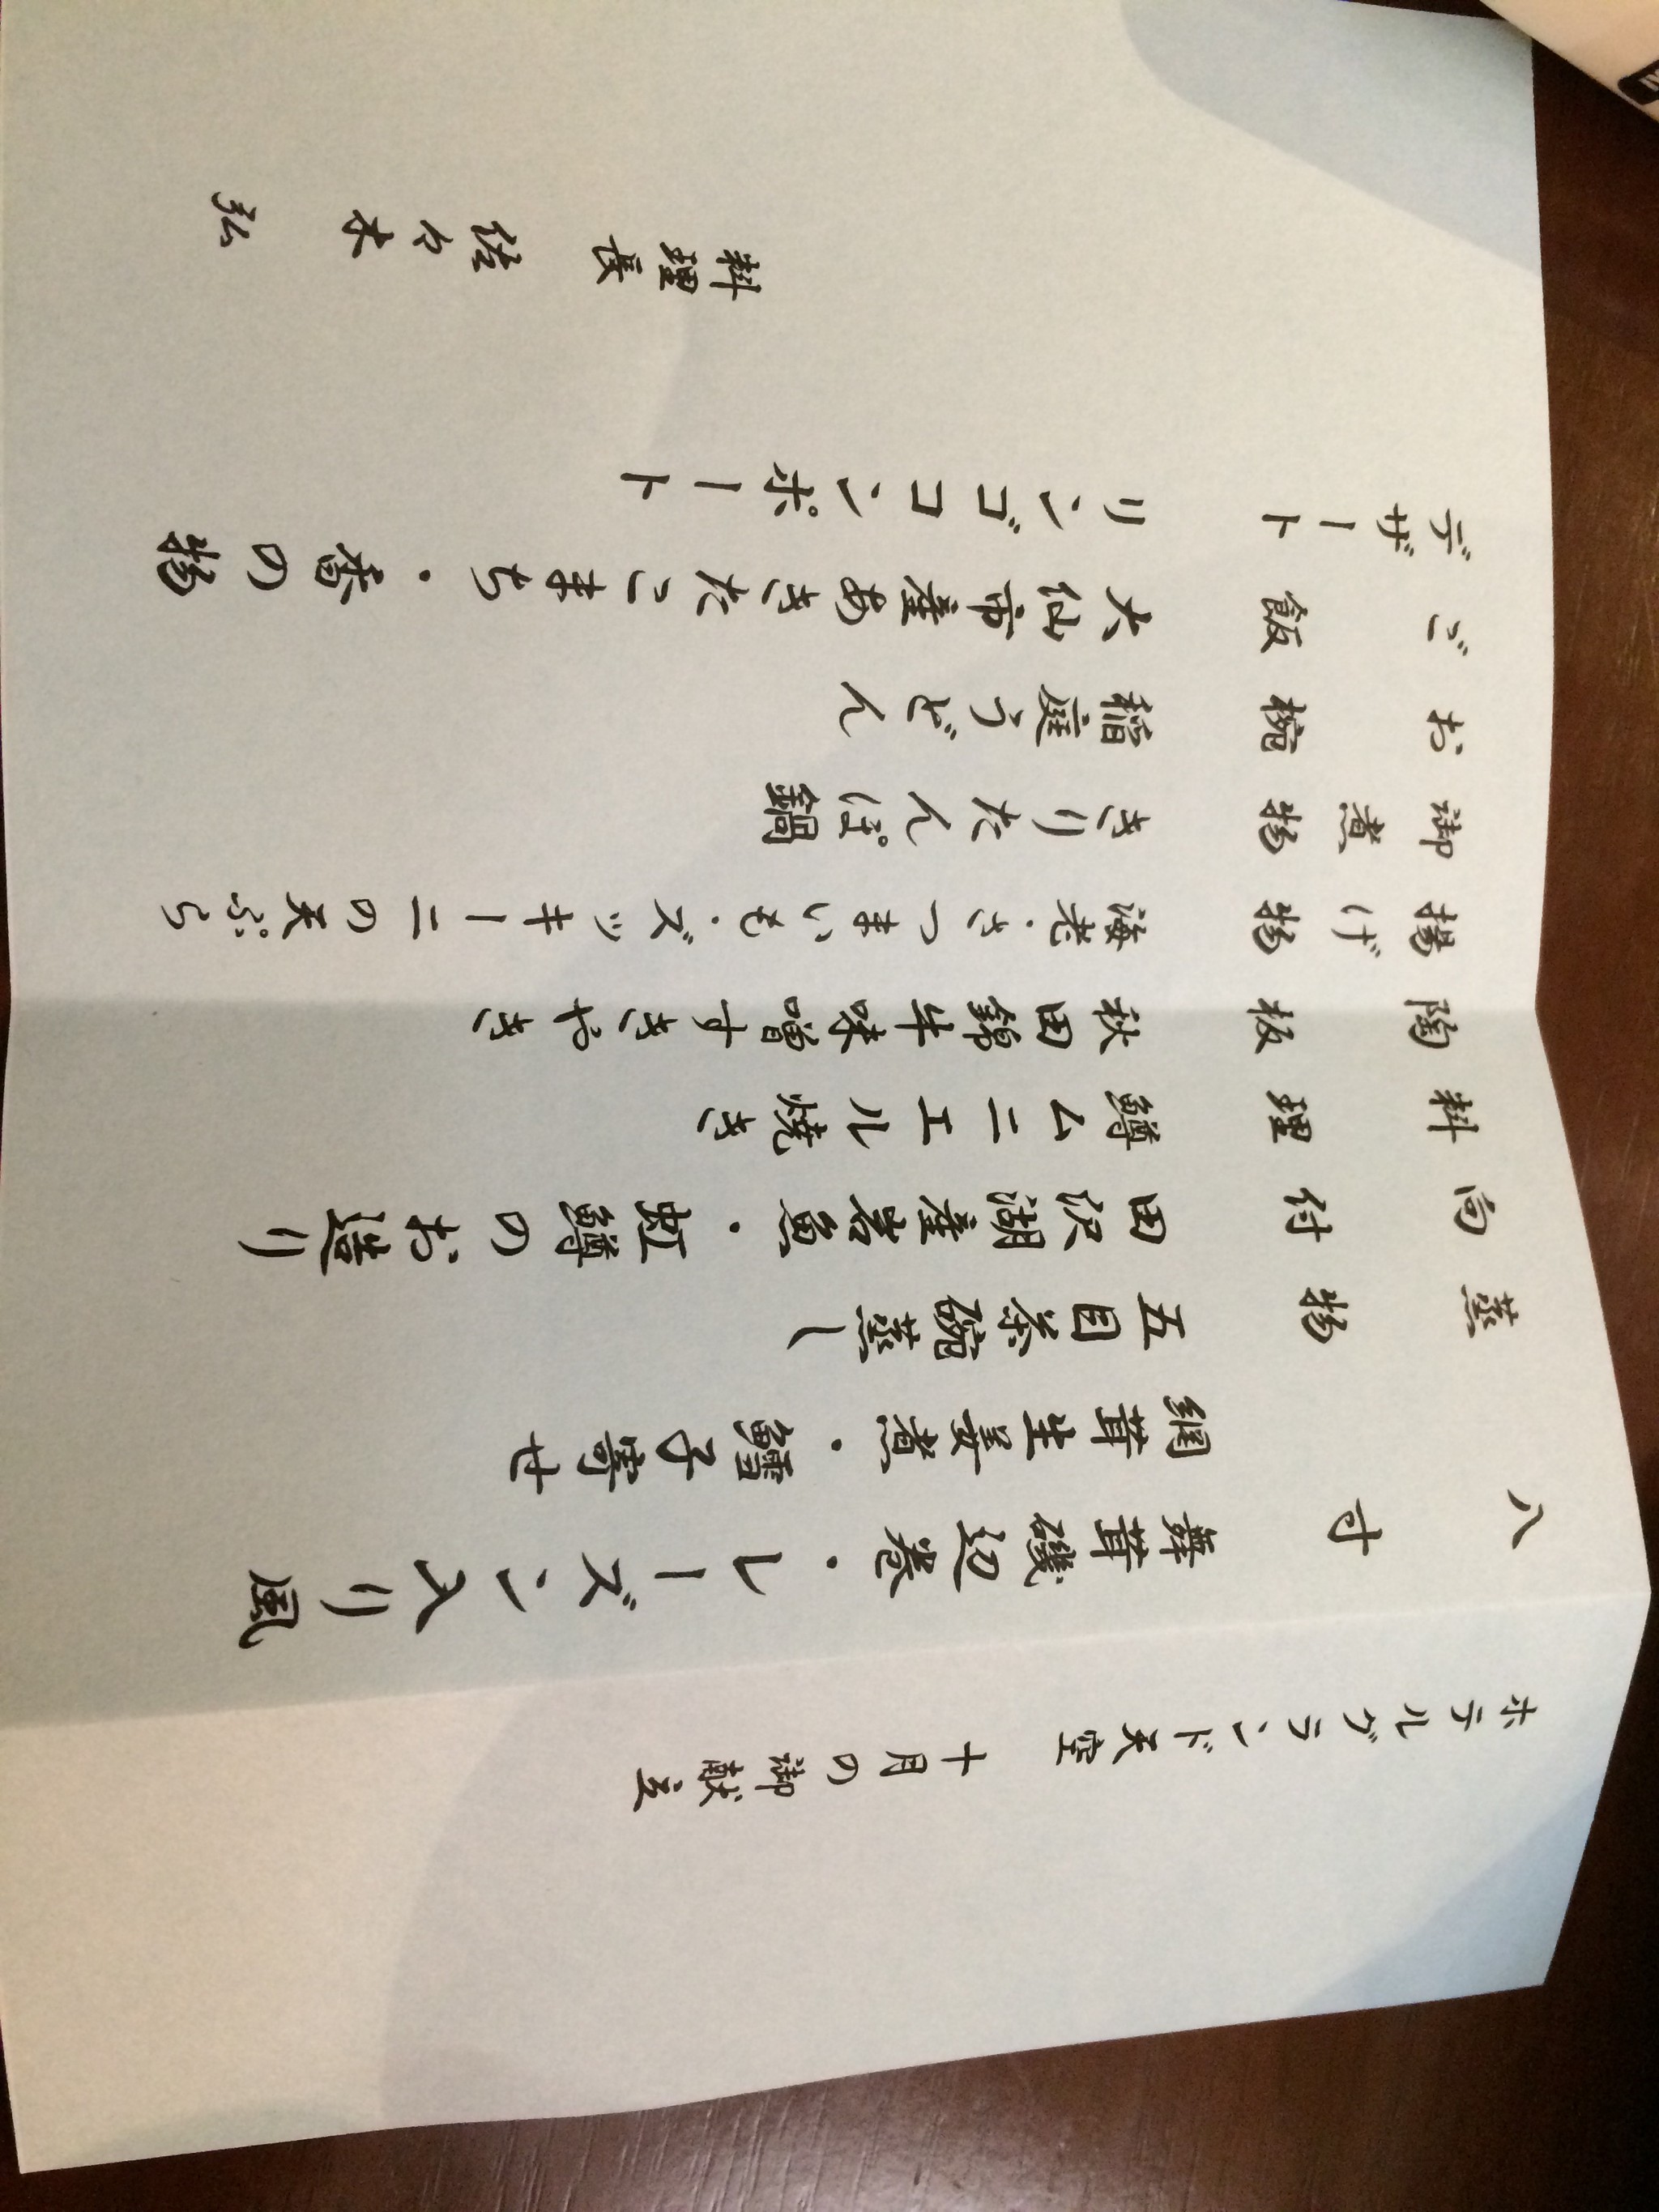 ホテルグランド天空 十月の御献立
八寸 舞茸磯辺巻・レーズン入り風
網茸生姜煮・鱈子寄せ
蒸物 五目茶碗蒸し
向付 田沢湖産岩魚・虹鱒のお造り
料理 鱒ムニエル焼き
陶板 秋田錦牛味噌すきやき
揚げ物 海老・さつまいも・ズッキーニの天ぷら
御煮物 きりたんぽ鍋
お椀 稲庭うどん
ご飯 大仙市産あきたこまち・香の物
デザート リンゴコンポート
料理長 佐々木 弘